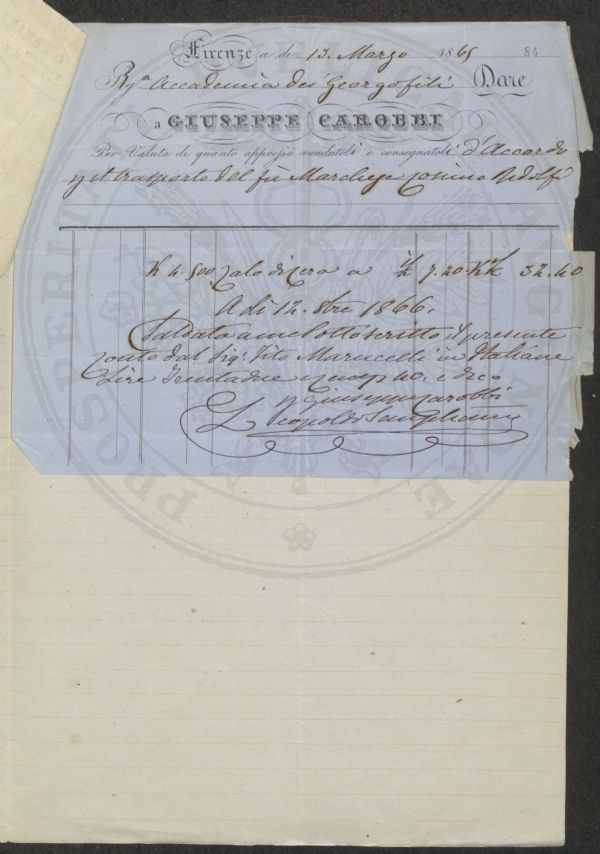 Firenze a dì 13. Marzo 1865 84
Rª Accademia dei Georgofili Dare
a GIUSEPPE CAROBBI
Per Valuta di quanto appresso vendutoli e consegnatoli d'Accordo
p il trasporto del fu Marchese Cosimo Ridolfi
K 4. 500 Calo di Cera a £ 7.20 K £ 32.40
A dì 12. 8bre 1866.
Saldato a me sottoscritto il presente
conto dal Sigr Tito Marucelli in Italiane
Lire Trentadue e 40. e dico
p Giuseppe Carobbi
Leopoldo
PROSPERITATI